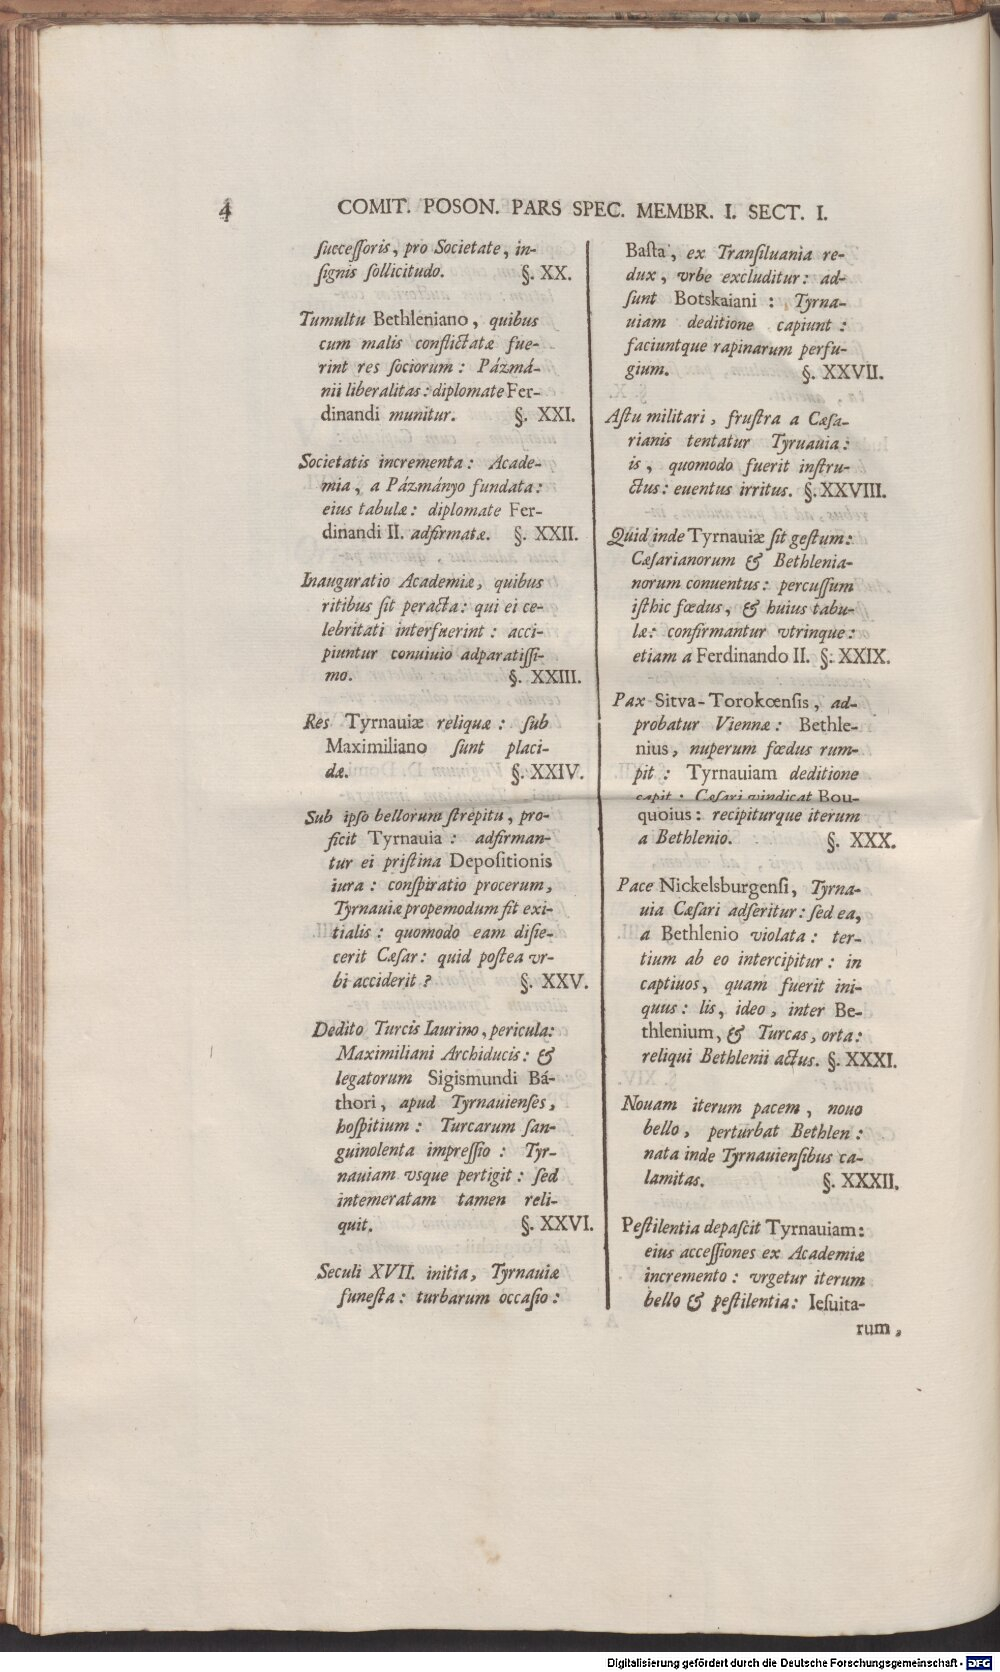 4 COMIT. POSON. PARS SPEC. MEMBR. I. SECT. I.
ſucceſſoris, pro Societate, in-
ſignis ſollicitudo. §. XX.
Tumultu Bethleniano, quibus
cum malis conflictatæ fue-
rint res ſociorum: Pázmá-
nii liberalitas: diplomate Fer-
dinandi munitur. §. XXI.
Societatis incrementa: Acade-
mia, a Pázmányo fundata:
eius tabulæ: diplomate Fer-
dinandi II. adfirmatæ. §. XXII.
Inauguratio Academiæ, quibus
ritibus ſit peracta: qui ei ce-
lebritati interfuerint: acci-
piuntur conuiuio adparatiſſi-
mo. §. XXIII.
Res Tyrnauiæ reliquæ: ſub
Maximiliano ſunt placi-
dæ. §. XXIV.
Sub ipſo bellorum ſtrepitu, pro-
ficit Tyrnauia: adfirman-
tur ei priſtina Depoſitionis
iura: conſpiratio procerum,
Tyrnauiæ propemodum fit exi-
tialis: quomodo eam diſie-
cerit Cæſar: quid poſtea vr-
bi acciderit? §. XXV.
Dedito Turcis Iaurino, pericula:
Maximiliani Archiducis: &
legatorum Sigismundi Bá-
thori, apud Tyrnauienſes,
hoſpitium: Turcarum ſan-
guinolenta impreſſio: Tyr-
nauiam vsque pertigit: ſed
intemeratam tamen reli-
quit. §. XXVI.
Seculi XVII. initia, Tyrnauiæ
funeſta: turbarum occaſio:
Baſta, ex Tranſiluania re-
dux, vrbe excluditur: ad-
ſunt Botskaiani: Tyrna-
uiam deditione capiunt:
faciuntque rapinarum perfu-
gium. §. XXVII.
Aſtu militari, fruſtra a Cæſa-
rianis tentatur Tyruauia:
is, quomodo fuerit inſtru-
ctus: euentus irritus. §. XXVIII.
Quid inde Tyrnauiæ ſit geſtum:
Cæſarianorum & Bethlenia-
norum conuentus: percuſſum
iſthic fœdus, & huius tabu-
læ: confirmantur vtrinque:
etiam a Ferdinando II. §. XXIX.
Pax Sitva-Torokœnſis, ad-
probatur Viennæ: Bethle-
nius, nuperum fœdus rum-
pit: Tyrnauiam deditione
capit: Cæſari vindicat Bou-
quoius: recipiturque iterum
a Bethlenio. §. XXX.
Pace Nickelsburgenſi, Tyrna-
uia Cæſari adſeritur: ſed ea,
a Bethlenio violata: ter-
tium ab eo intercipitur: in
captiuos, quam fuerit ini-
quus: lis, ideo, inter Be-
thlenium, & Turcas, orta:
reliqui Bethlenii actus. §. XXXI.
Nouam iterum pacem, nouo
bello, perturbat Bethlen:
nata inde Tyrnauienſibus ca-
lamitas. §. XXXII.
Peſtilentia depaſcit Tyrnauiam:
eius acceſſiones ex Academiæ
incremento: vrgetur iterum
bello & peſtilentia: Ieſuita-
rum,
Digitalisierung gefördert durch die Deutsche Forschungsgemeinschaft - DFG